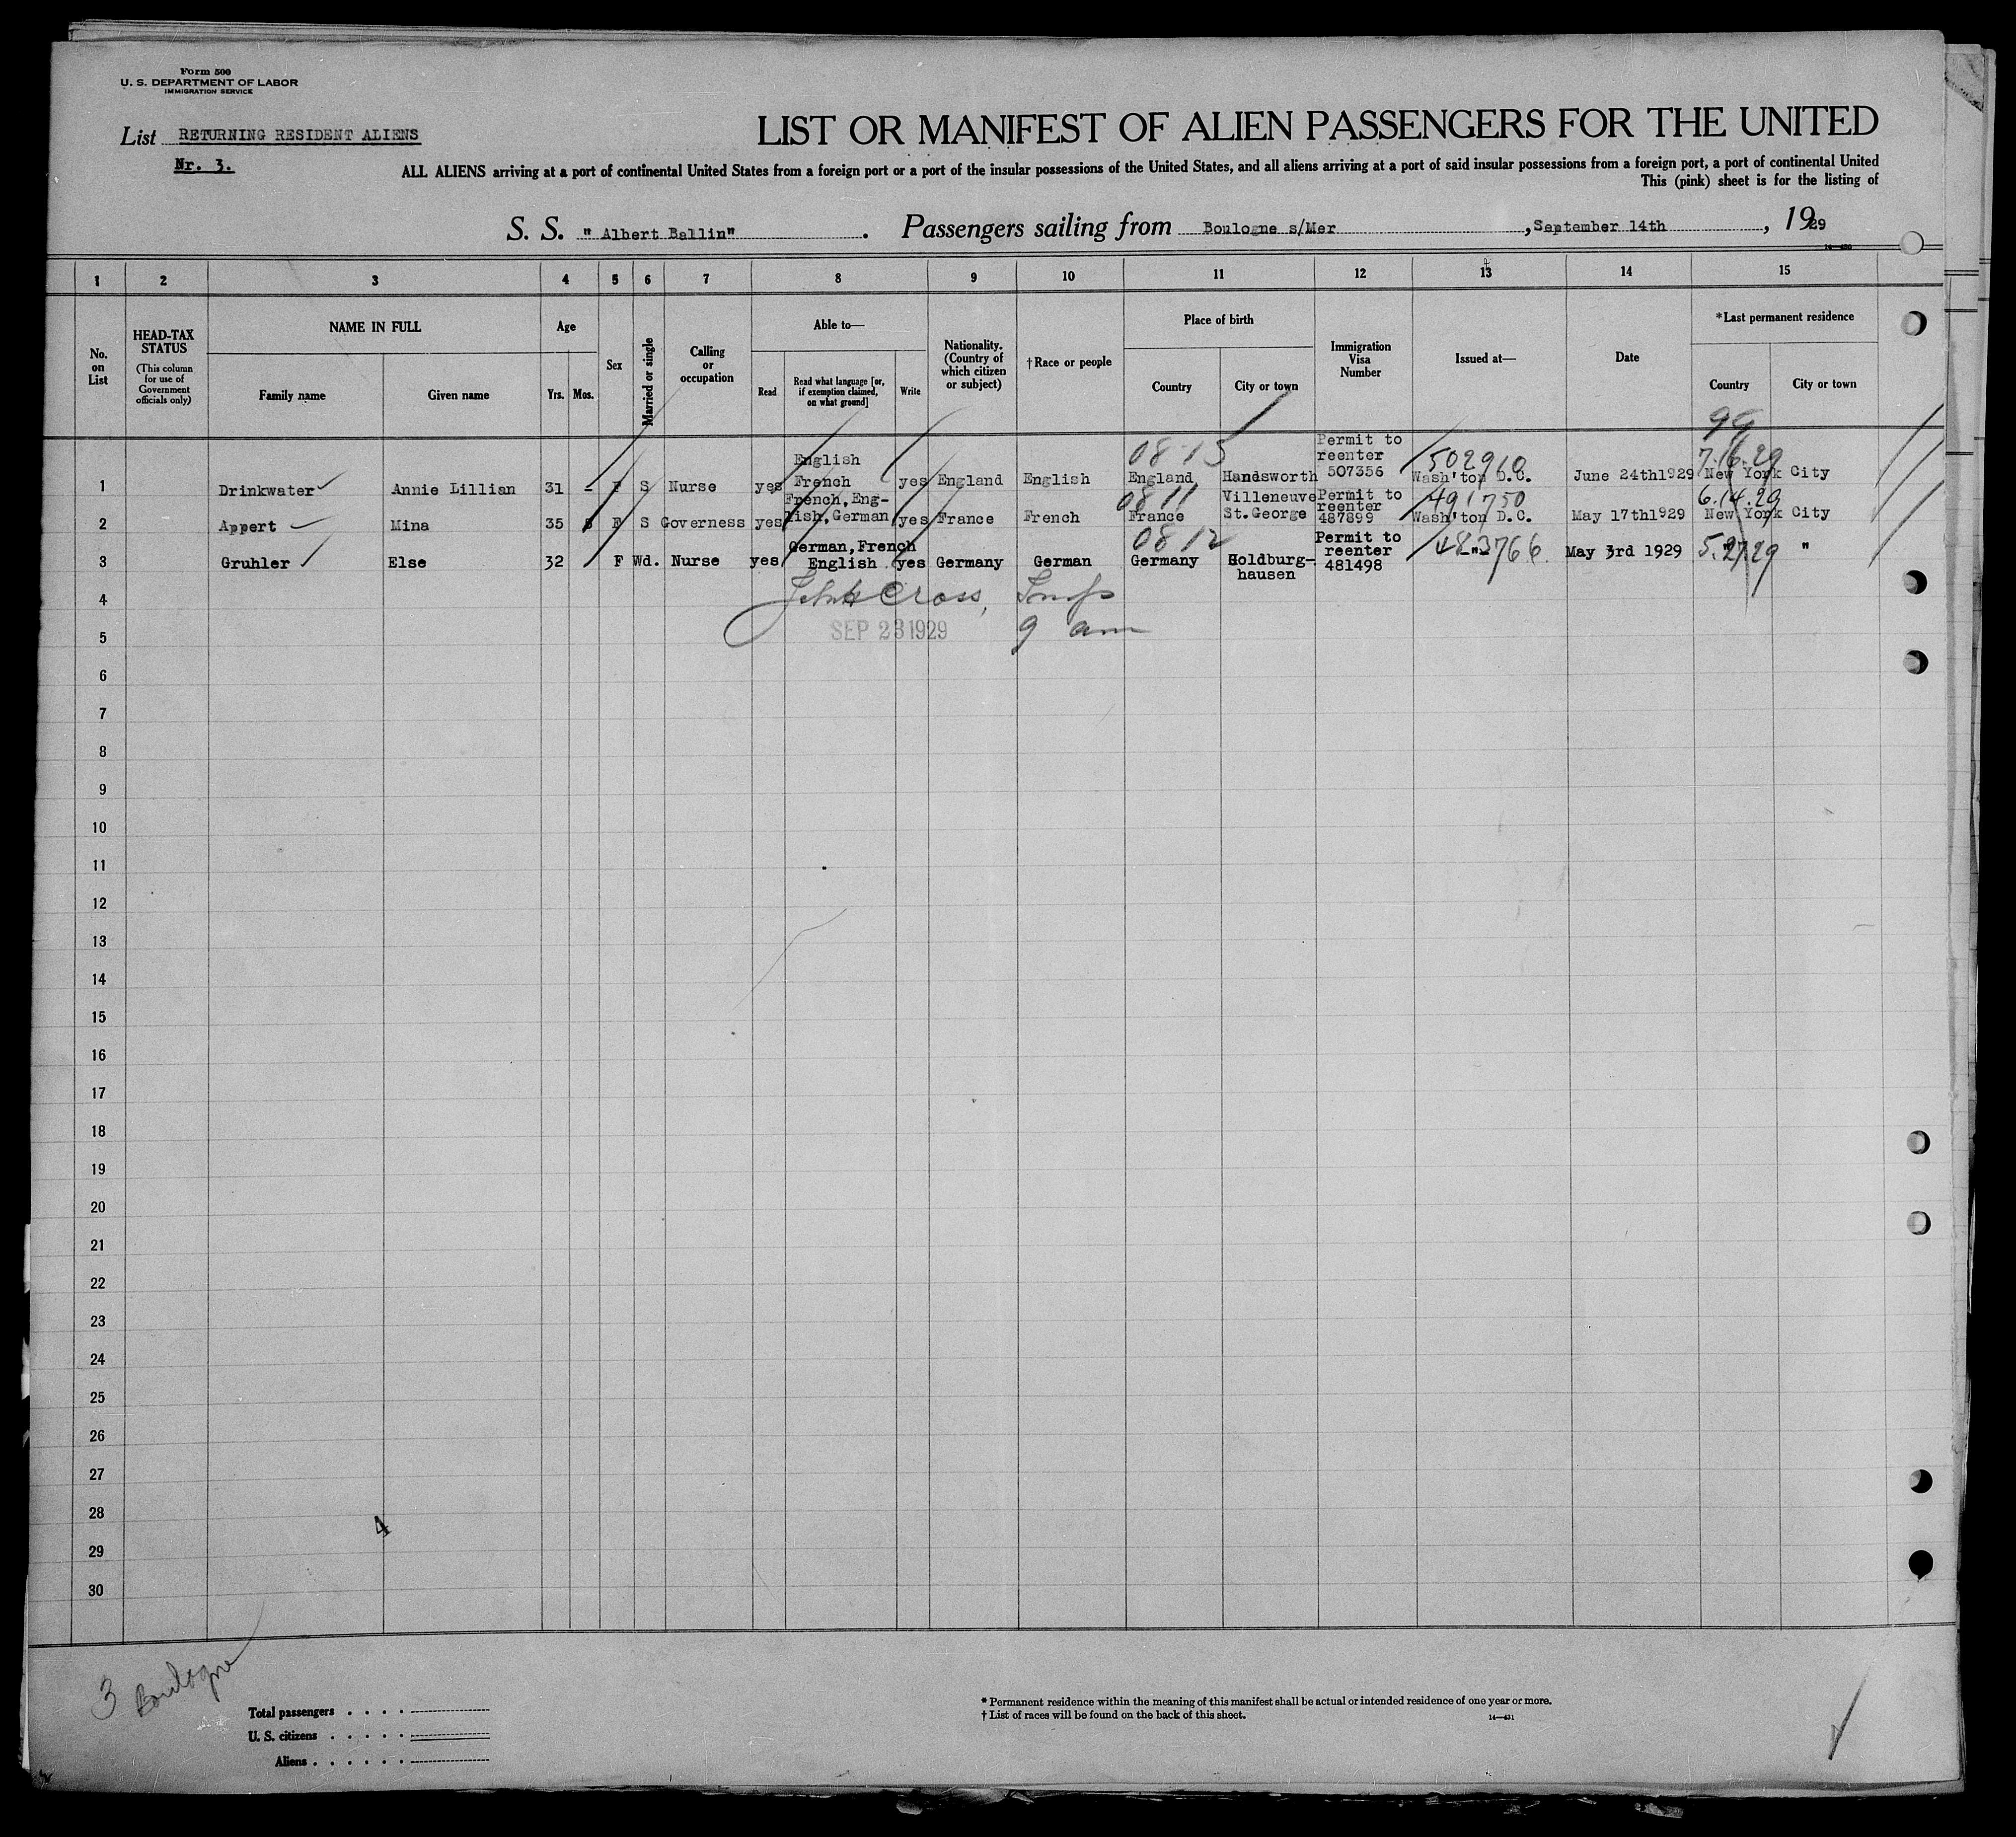 Form 500
U. S. DEPARTMENT OF LABOR
IMMIGRATION SERVICE
List RETURNING RESIDENT ALIENS
Nr. 3.
LIST OR MANIFEST OF ALIEN PASSENGERS FOR THE UNITED
ALL ALIENS arriving at a port of continental United States from a foreign port or a port of the insular possessions of the United States, and all aliens arriving at a port of said insular possessions from a foreign port, a port of continental United
This (pink) sheet is for the listing of
S. S. " Albert Ballin" . Passengers sailing from Boulogne s/Mer , September 14th , 1929
14-430
1 2 3 4 5 6 7 8 9 10 11 12 13 14 15
No. on List
HEAD-TAX STATUS
(This column for use of Government officials only)
NAME IN FULL
Family name
Given name
Age
Yrs. Mos.
Sex
Married or single
Calling or occupation
Able to—
Read
Read what language [or, if exemption claimed, on what ground]
Write
Nationality. (Country of which citizen or subject)
†Race or people
Place of birth
Country
City or town
Immigration Visa Number
Issued at—
Date
*Last permanent residence
Country
City or town
99
1 Drinkwater Annie Lillian 31 - F S Nurse yes English French yes England English 08-15 England Handsworth Permit to reenter 507356 502910 Wash'ton D.C. June 24th1929 7.16.29 New York City
2 Appert Mina 35 8 F S Governess yes French,Eng-lish,German yes France French 0811 France Villeneuve St.George Permit to reenter 487899 491750 Wash'ton D.C. May 17th1929 6.14.29 New York City
3 Gruhler Else 32 F Wd. Nurse yes German,French English yes Germany German 0812 Germany Holdburg-hausen Permit to reenter 481498 " 483766 May 3rd 1929 5.27.29 "
4 Cross,
5 SEP 23 1929 9 am
6
7
8
9
10
11
12
13
14
15
16
17
18
19
20
21
22
23
24
25
26
27
28
4
29
30
3 Boulogne
Total passengers . . . .
U. S. citizens . . . . .
Aliens . . . . . .
* Permanent residence within the meaning of this manifest shall be actual or intended residence of one year or more.
† List of races will be found on the back of this sheet.
14—431